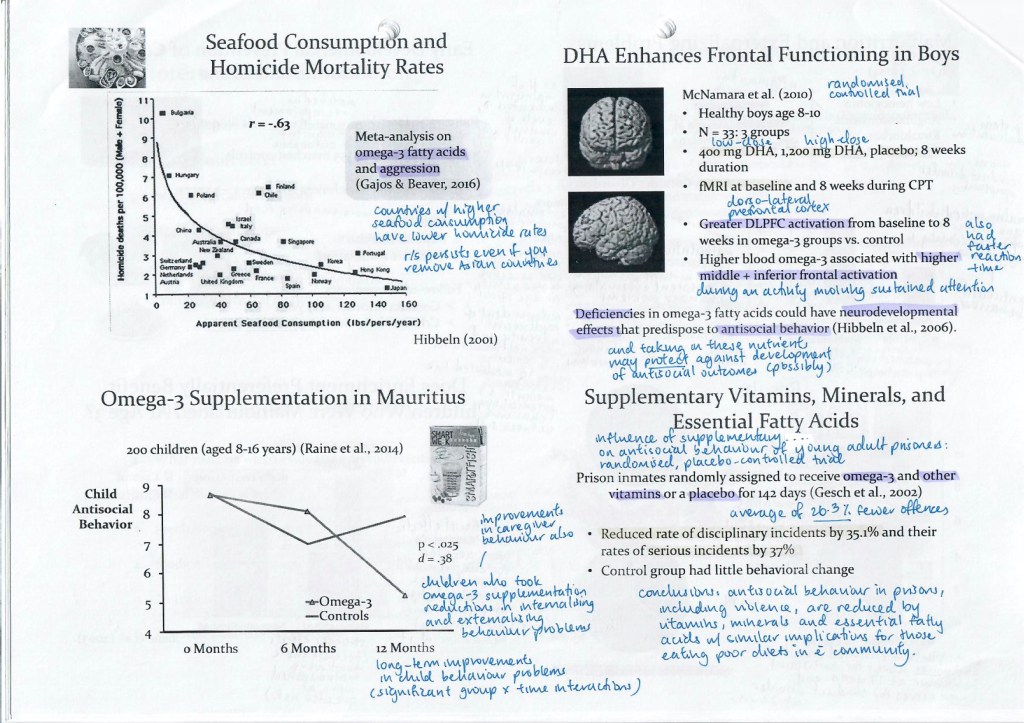 Seafood Consumption and
Homicide Mortality Rates
Homicide deaths per 100,000 (Male + Female)
11
10
9
8
7
6
5
4
3
2
1
r = -.63
Bulgaria
Hungary
Poland
Finland
Chile
Israel
Italy
China
Australia
Canada
New Zealand
Singapore
Portugal
Switzerland
Germany
Netherlands
Austria
Sweden
Korea
Greece
United Kingdom
France
Spain
Norway
Hong Kong
Japan
0 20 40 60 80 100 120 140 160
Apparent Seafood Consumption (lbs/pers/year)
Hibbeln (2001)
Meta-analysis on
omega-3 fatty acids
and aggression
(Gajos & Beaver, 2016)
countries w/ higher
seafood consumption
have lower homicide rates
r/s persists even if you
remove Asian countries
DHA Enhances Frontal Functioning in Boys
McNamara et al. (2010) randomised,
controlled trial
• Healthy boys age 8-10
• N = 33: 3 groups
low-dose high-dose
• 400 mg DHA, 1,200 mg DHA, placebo; 8 weeks
duration
• fMRI at baseline and 8 weeks during CPT
dorso-lateral
prefrontal cortex
• Greater DLPFC activation from baseline to 8
weeks in omega-3 groups vs. control
also
had
faster
reaction
time
• Higher blood omega-3 associated with higher
middle + inferior frontal activation
during an activity involving sustained attention
Deficiencies in omega-3 fatty acids could have neurodevelopmental
effects that predispose to antisocial behavior (Hibbeln et al., 2006).
and taking in these nutrients
may protect against development
of antisocial outcomes (possibly)
Omega-3 Supplementation in Mauritius
200 children (aged 8-16 years) (Raine et al., 2014)
SMART
SMARTFISH
Child
Antisocial
Behavior
9
8
7
6
5
4
p < .025
d = .38
Omega-3
Controls
0 Months 6 Months 12 Months
improvements
in caregiver
behaviour also
children who took
omega-3 supplementation
reductions in internalising
and externalising
behaviour problems
long-term improvements
in child behaviour problems
(significant group x time interactions)
Supplementary Vitamins, Minerals, and
Essential Fatty Acids
influence of supplementary ....
on antisocial behaviour of young adult prisoners:
randomised, placebo-controlled trial
Prison inmates randomly assigned to receive omega-3 and other
vitamins or a placebo for 142 days (Gesch et al., 2002)
average of 26.3% fewer offences
• Reduced rate of disciplinary incidents by 35.1% and their
rates of serious incidents by 37%
• Control group had little behavioral change
conclusions: antisocial behaviour in prisons,
including violence, are reduced by
vitamins, minerals and essential fatty
acids w/ similar implications for those
eating poor diets in ē community.